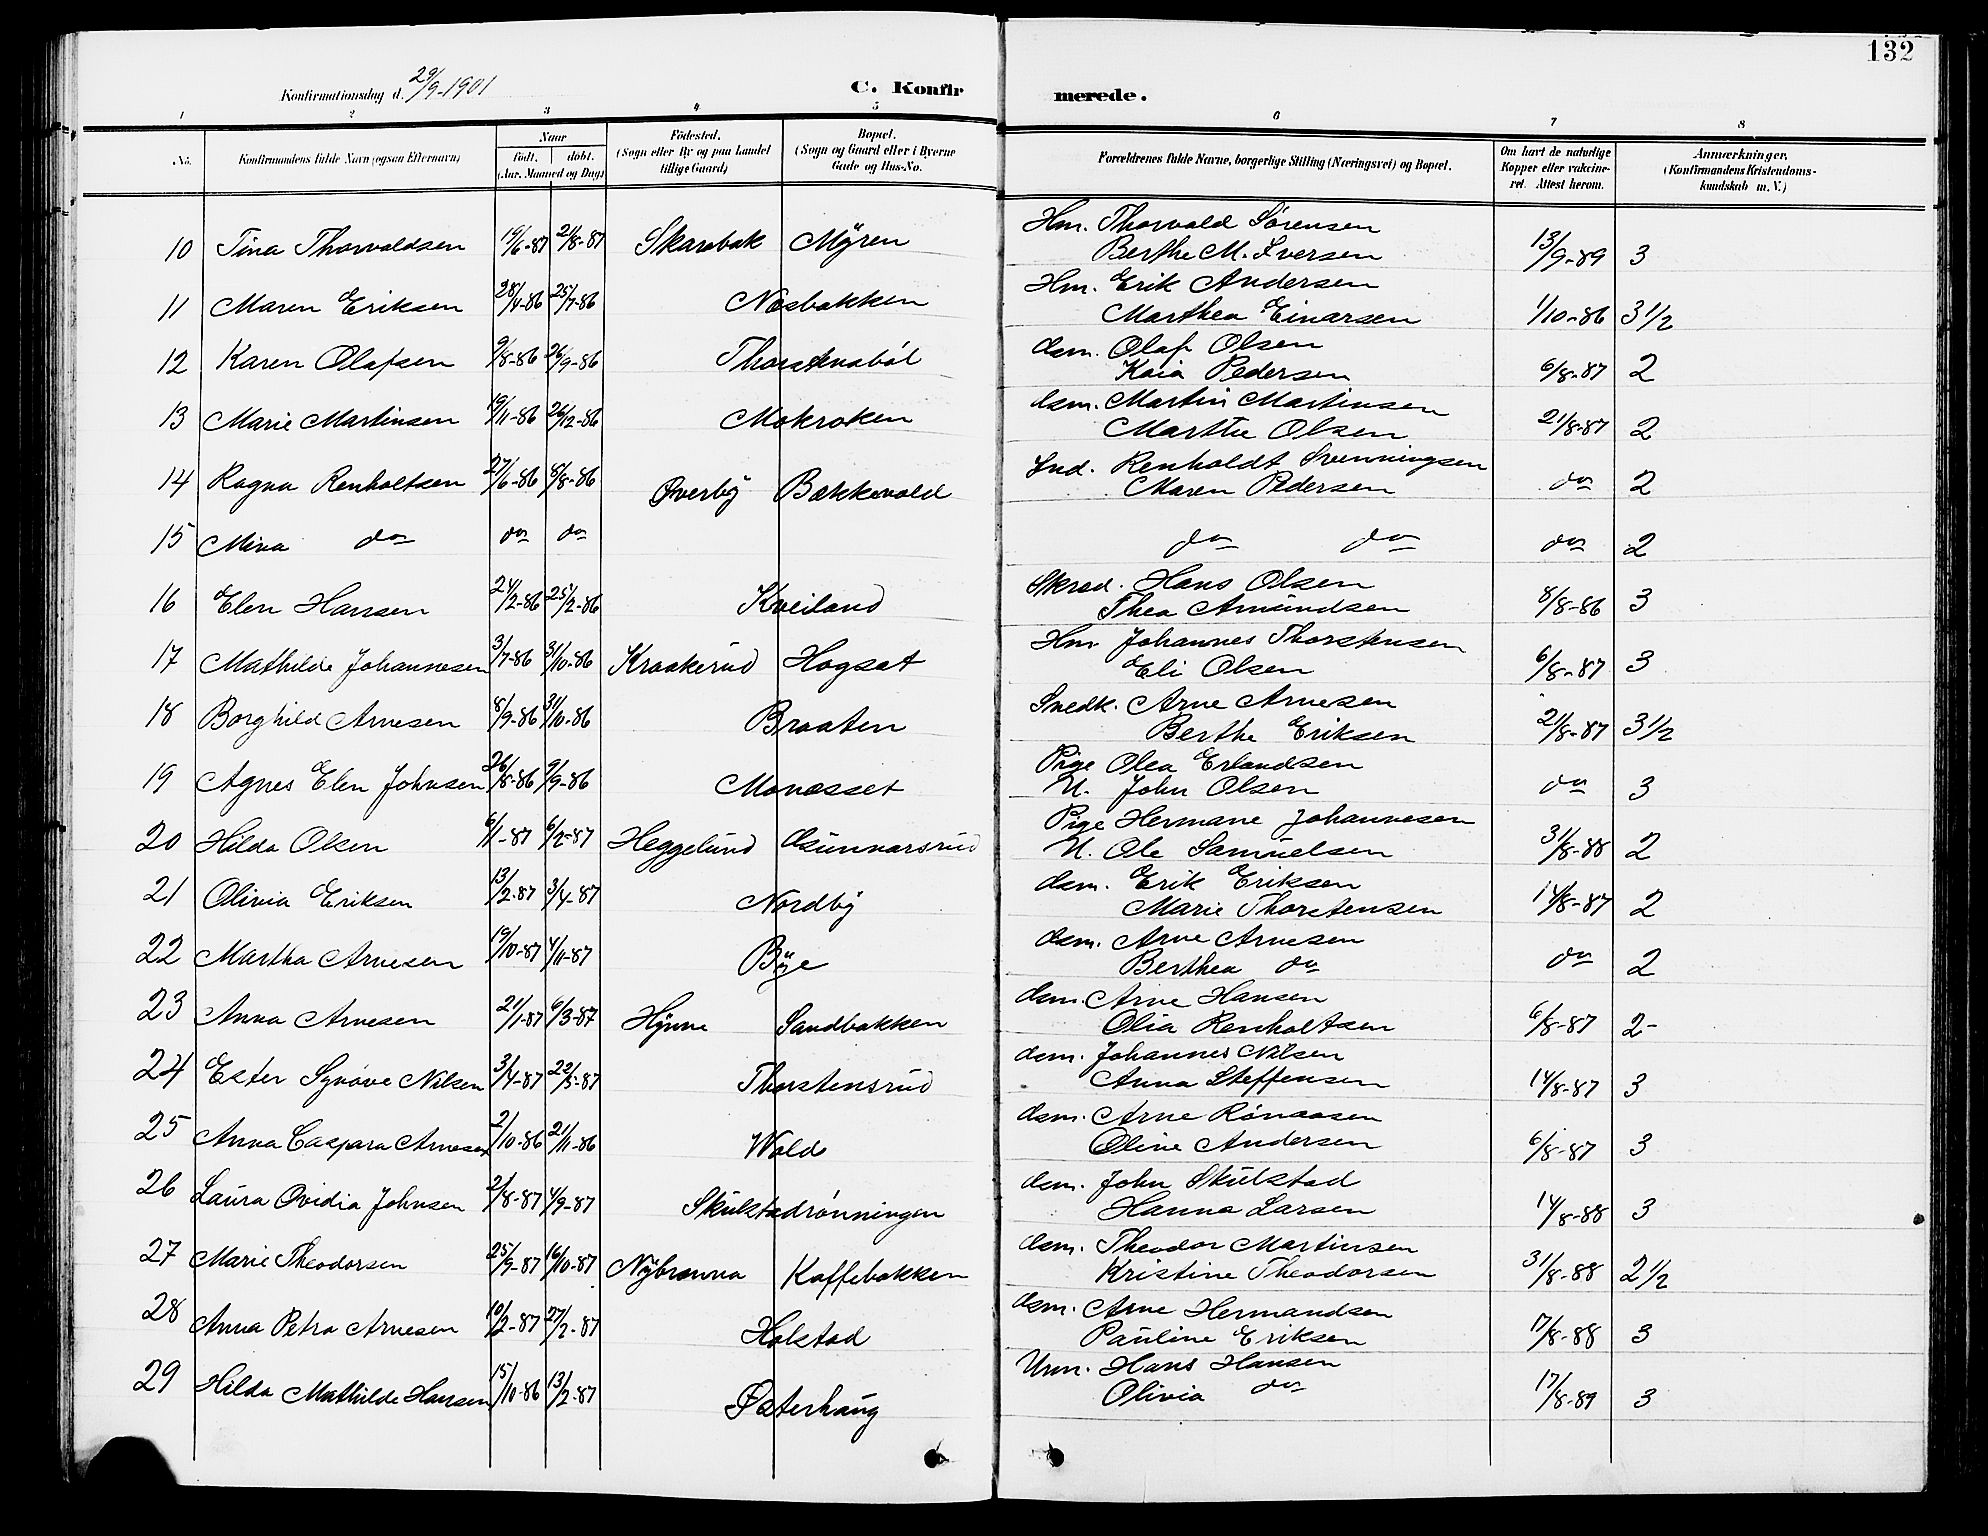 132
Konfirmationsdag d. 29/9-1901
C. Konfirmerede.
1 2 3 4 5 6 7 8
No. Konfirmandens fulde Navn (ogsaa Efternavn) Naar født. døbt. (Aar. Maaned og Dag) Fødested. (Sogn eller By og paa Landet tillige Gaard) Bopæl. (Sogn og Gaard eller i Byerne Gade og Hus-No. Forældrenes fulde Navne, borgerlige Stilling (Næringsvei) og Bopæl. Om havt de naturlige Kopper eller vaccineret. Attest herom. Anmærkninger. (Konfirmandens Kristendomskundskab m. V.)
10 Tina Thorvaldsen 19/6-87 21/8-87 Skarebak Mÿren Hm. Thorvald Sørensen
Berthe M. Iversen 13/9-89 3
11 Maren Eriksen 28/4-86 25/7-86 Næsbakken Hm. Erik Andersen
Marthea Einarsen 1/10-86 3 1/2
12 Karen Olafsen 9/8-86 26/9-86 Thorstensbøl Gsm. Olaf Olsen
Kaia Pedersen 6/8-87 2
13 Marie Martinsen 19/11-86 26/12-86 Mokroken Gsm. Martin Martinsen
Marthe Olsen 21/8-87 2
14 Ragna Renholtsen 27/6-86 8/8-86 Øverbÿ Bækkevold Ind. Renholdt Svenningsen
Maren Pedersen do 2
15 Mina do do do do do do 2
16 Elen Hansen 24/2-86 25/2-86 Kveiland Skræd. Hans Olsen
Thea Amundsen 8/8-86 3
17 Mathilde Johannesen 3/7-86 31/10-86 Kraakerud Hogsæt Hm. Johannes Thorstensen
Eli Olsen 6/8-87 3
18 Borghild Arnesen 8/9-86 31/10-86 Braaten Snedk. Arne Arnesen
Berthe Eriksen 21/8-87 3 1/2
19 Agnes Elen Johnsen 26/8-86 9/9-86 Monæsset Pige Olea Erlandsen
U. John Olsen do 3
20 Hilda Olsen 6/1-87 6/2-87 Heggelund Gunnarsrud Pige Hermane Johannesen
U. Ole Samuelsen 31/8-88 2
21 Olivia Eriksen 13/2-87 3/4-87 Nordbÿ Gsm. Erik Eriksen
Marie Thorstensen 14/8-87 2
22 Martha Arnesen 19/10-87 4/11-87 Bÿe Gsm. Arne Arnesen
Berthea do do 2
23 Anna Arnesen 21/1-87 6/3-87 Hÿnne Sandbakken Gsm. Arne Hansen
Olia Renholtsen 6/8-87 2-
24 Ester Synøve Nilsen 3/4-87 22/5-87 Thorstensrud Gsm. Johannes Nilsen
Anna Steffensen 14/8-87 3
25 Anna Caspara Arnesen 2/10-86 21/11-86 Wold Gsm. Arne
Oline Andersen 6/8-87 3
26 Laura Ovidia Johnsen 2/8-87 4/9-87 Skulstadrønningen Gsm. John Skulstad
Hanna Larsen 14/8-88 3
27 Marie Theodorsen 25/9-87 16/10-87 Nÿbrænna Kaffebakken Gsm. Theodor Martinsen
Kristine Theodorsen 31/8-88 2 1/2
28 Anna Petra Arnesen 10/2-87 27/2-87 Holstad Gsm. Arne Hermandsen
Pauline Eriksen 17/8-88 3
29 Hilda Mathilde Hansen 15/10-86 13/2-87 Østerhaug Urm. Hans Hansen
Olivia do 17/8-89 3